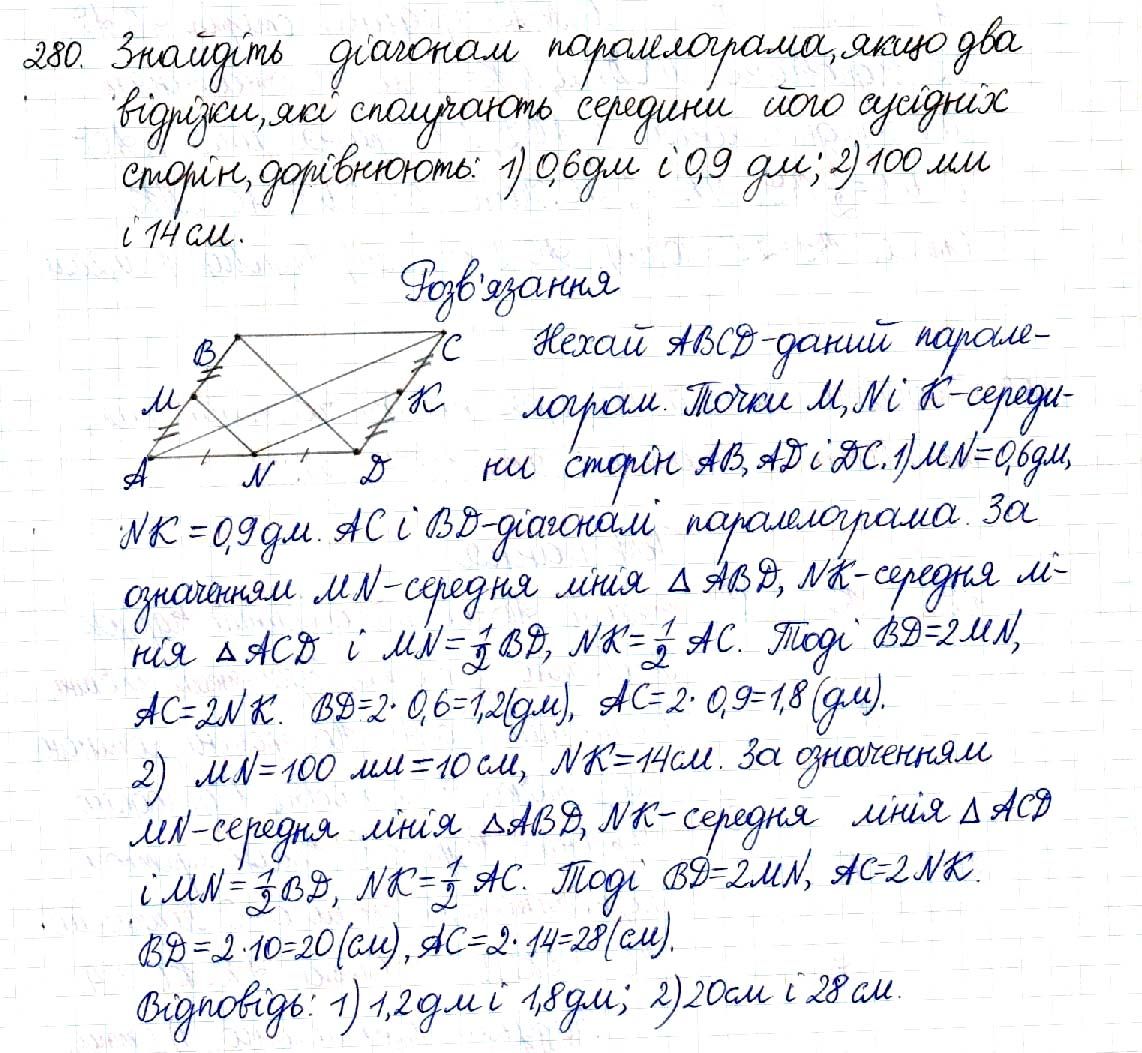 280. Знайдіть діагоналі паралелограма, якщо два
відрізки, які сполучають середини його сусідніх
сторін, дорівнюють: 1) 0,6 дм і 0,9 дм; 2) 100 мм
і 14 см.
Розв'язання
B C
M K
A N D
Нехай ABCD-даний парале-
лограм. Точки M, N і K-середи-
ни сторін AB, AD і DC. 1) MN=0,6дм,
NK=0,9дм. AC і BD-діагоналі паралелограма. За
означенням MN-середня лінія △ABD, NK-середня лі-
нія △ACD і MN=1/2 BD, NK=1/2 AC. Тоді BD=2MN,
AC=2NK. BD=2·0,6=1,2(дм), AC=2·0,9=1,8(дм).
2) MN=100 мм=10см, NK=14см. За означенням
MN-середня лінія △ABD, NK-середня лінія △ACD
і MN=1/2 BD, NK=1/2 AC. Тоді BD=2MN, AC=2NK.
BD=2·10=20(см), AC=2·14=28(см).
Відповідь: 1) 1,2дм і 1,8дм; 2) 20см і 28см.